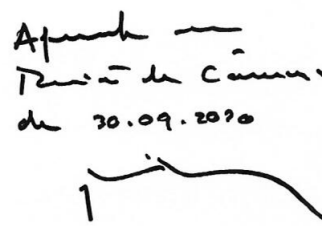 Aprovado em
Reunião de Câmara
de 30.09.2020